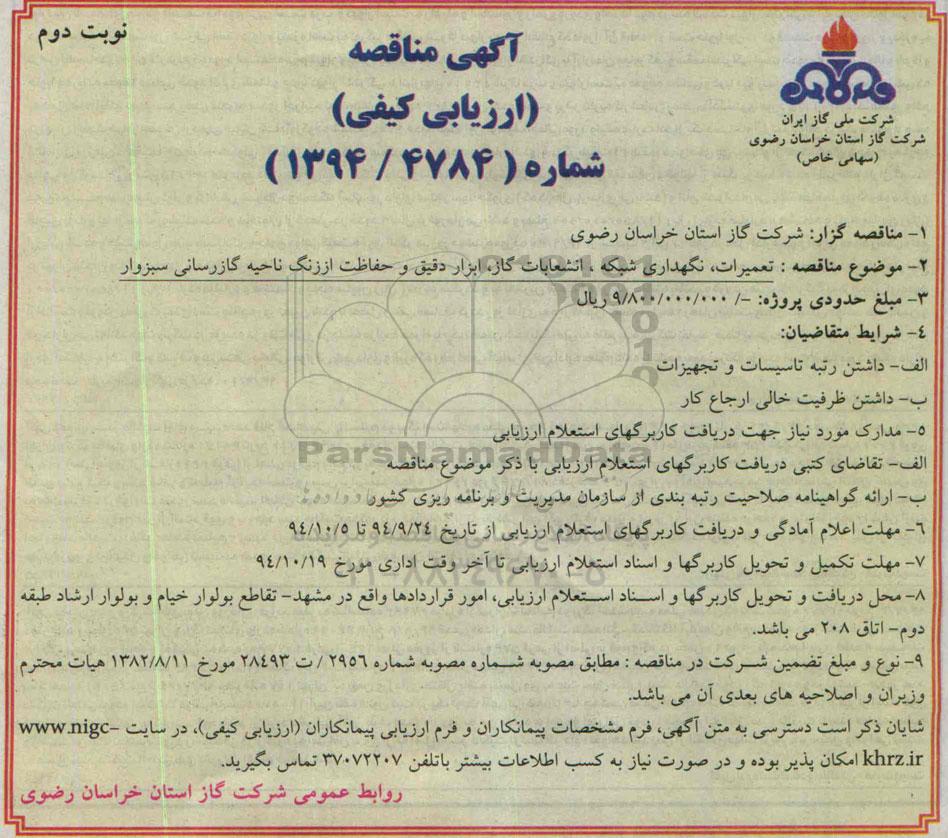 نوبت دوم
آگهی مناقصه
(ارزیابی کیفی)
شماره ( ۴۷۸۴ / ۱۳۹۴ )
شرکت ملی گاز ایران
شرکت گاز استان خراسان رضوی
(سهامی خاص)
۱- مناقصه گزار: شرکت گاز استان خراسان رضوی
۲- موضوع مناقصه : تعمیرات، نگهداری شبکه ، انشعابات گاز، ابزار دقیق و حفاظت اززنگ ناحیه گازرسانی سبزوار
۳- مبلغ حدودی پروژه: -/ ۹/۸۰۰/۰۰۰/۰۰۰ ریال
۴- شرایط متقاضیان:
الف- داشتن رتبه تاسیسات و تجهیزات
ب- داشتن ظرفیت خالی ارجاع کار
۵- مدارک مورد نیاز جهت دریافت کاربرگهای استعلام ارزیابی
ParsNamadData
الف- تقاضای کتبی دریافت کاربرگهای استعلام ارزیابی با ذکر موضوع مناقصه
ب- ارائه گواهینامه صلاحیت رتبه بندی از سازمان مدیریت و برنامه ریزی کشور
۶- مهلت اعلام آمادگی و دریافت کاربرگهای استعلام ارزیابی از تاریخ ۹۴/۹/۲۴ تا ۹۴/۱۰/۵
۷- مهلت تکمیل و تحویل کاربرگها و اسناد استعلام ارزیابی تا آخر وقت اداری مورخ ۹۴/۱۰/۱۹
۸- محل دریافت و تحویل کاربرگها و اسناد استعلام ارزیابی، امور قراردادها واقع در مشهد- تقاطع بولوار خیام و بولوار ارشاد طبقه
دوم- اتاق ۲۰۸ می باشد.
۹- نوع و مبلغ تضمین شرکت در مناقصه : مطابق مصوبه شماره مصوبه شماره ۲۹۵۶ / ت ۲۸۴۹۳ مورخ ۱۳۸۲/۸/۱۱ هیات محترم
وزیران و اصلاحیه های بعدی آن می باشد.
شایان ذکر است دسترسی به متن آگهی، فرم مشخصات پیمانکاران و فرم ارزیابی پیمانکاران (ارزیابی کیفی)، در سایت www.nigc-
khrz.ir امکان پذیر بوده و در صورت نیاز به کسب اطلاعات بیشتر باتلفن ۳۷۰۷۲۲۰۷ تماس بگیرید.
روابط عمومی شرکت گاز استان خراسان رضوی